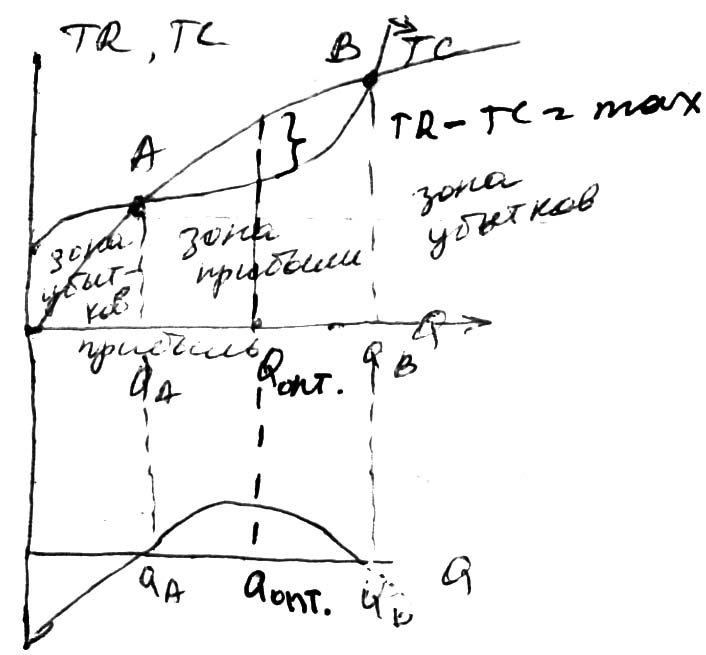 TR, TC
B TC
A
TR - TC = max
зона
убытков
зона
убыт-
ков
зона
прибыли
прибыль
Q
Q_A Q_опт. Q_B
Q_A Q_опт. Q_B Q